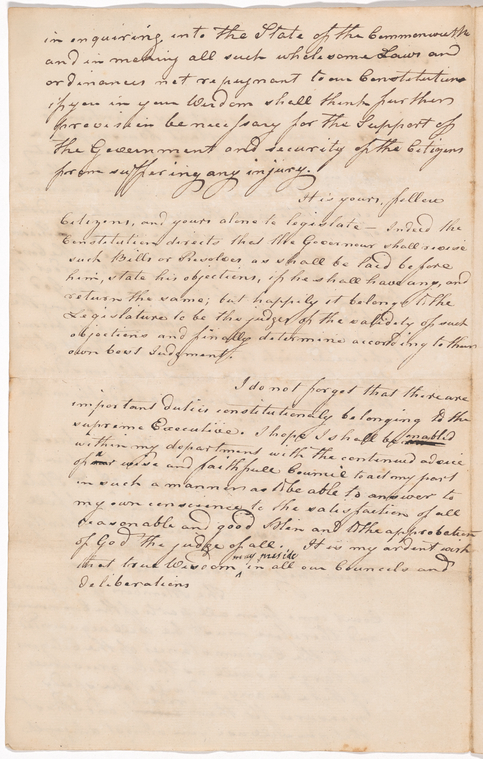 in enquiring into the State of the Commonwealth
and in making all such wholesome Laws and
ordinances not repugnant to our Constitution
if you in your Wisdom shall think further
provision be necessary for the Support of
the Government and security of the Citizens
from suffering any injury.
It is yours, fellow
Citizens, and yours alone to legislate – Indeed the
Constitution directs that the Governour shall revise
such Bills or Resolves as shall be laid before
him, state his objections, if he shall have any, and
return the same; but happily it belongs to the
Legislature to be the judges of the validity of such
objections and finally determine according to their
own best Judgment.
I do not forget that there are
important duties constitutionally belonging to the
supreme Executive. I hope I shall be enabled
within my department with the continued advice
of a wise and faithfull Council to act my part
in such a manner as to be able to answer to
my own conscience to the satisfaction of all
reasonable and good Men and to the approbation
of God the judge of all. It is my ardent wish
that true Wisdom may preside in all our Councils and
deliberations